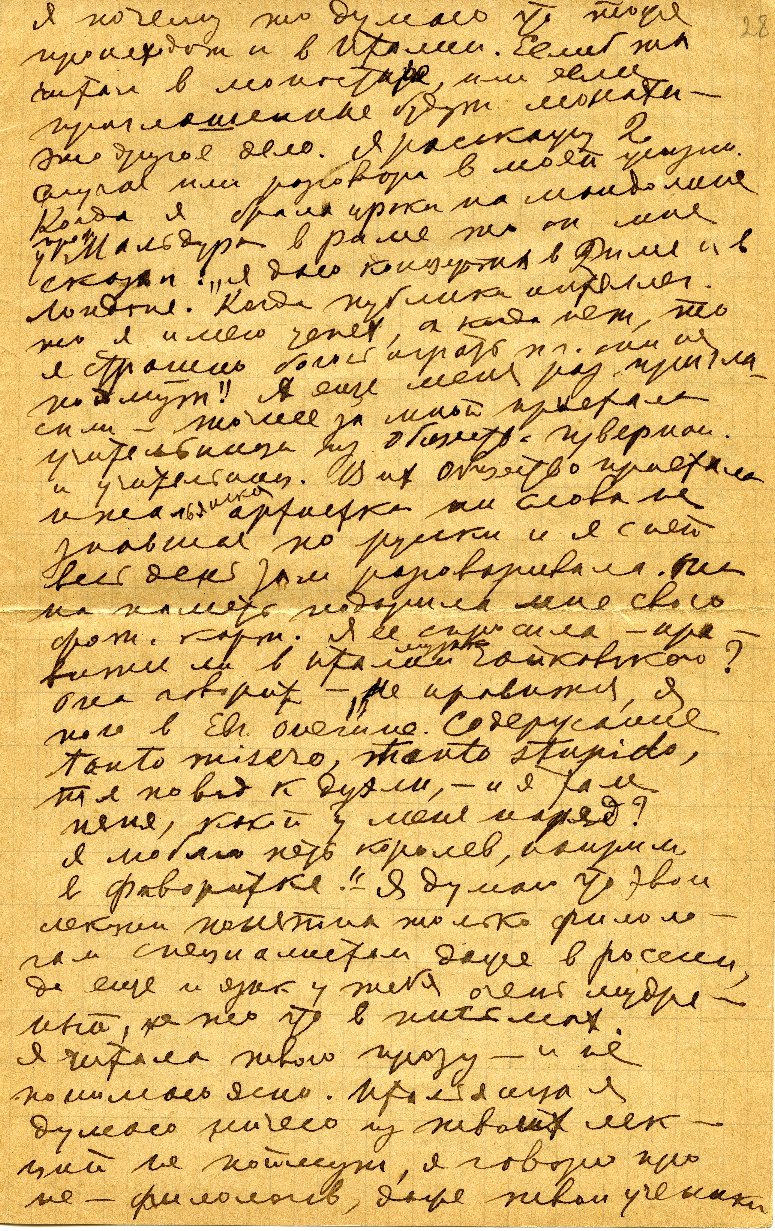 28
Я почему то думаю что тоже
происходит и в Италии. Если б ты
читал в монастыре, или если
приглашенные будут монахи –
это другое дело. Я расскажу 2
случая или разговора в моей жизни.
Когда я брала уроки на мандолине
у Мальдура в Риме то он мне
сказал: "я даю концерты в Риме и в
Лондоне. Когда публика интеллиг.
то я имею успех, а когда нет, то
я страшно боюсь играть п.ч. они не
поймут!" Я еще меня раз пригла-
сили – точнее за мной приехала
учительница из общества гувернан.
и учительниц. В их общество приехала
итальянка артистка ни слова не
знавшая по русски и я с ней
весь день там разговаривала. Она
на память подарила мне свою
фот. карт. Я ее спросила – нра-
вится ли в Италии музыка Чайковского?
Она говорит – "не нравится, я
пою в Евг. Онегине. Содержание
tanto misero, tanto stupido,
то я повод к дуэли, – и я там
няня, какой у меня наряд?
Я люблю петь королев, наприм.
в Фаворитке." – Я думаю что твои
лекции понятны только филоло-
гам специалистам даже в России,
да еще и язык у тебя очень мудре-
ный, не то что в письмах.
Я читала твою прозу – и не
понимаю ясно. Итальянцы я
думаю ничего из твоих лек-
ций не поймут, я говорю про
не – филологов, даже твои ученики